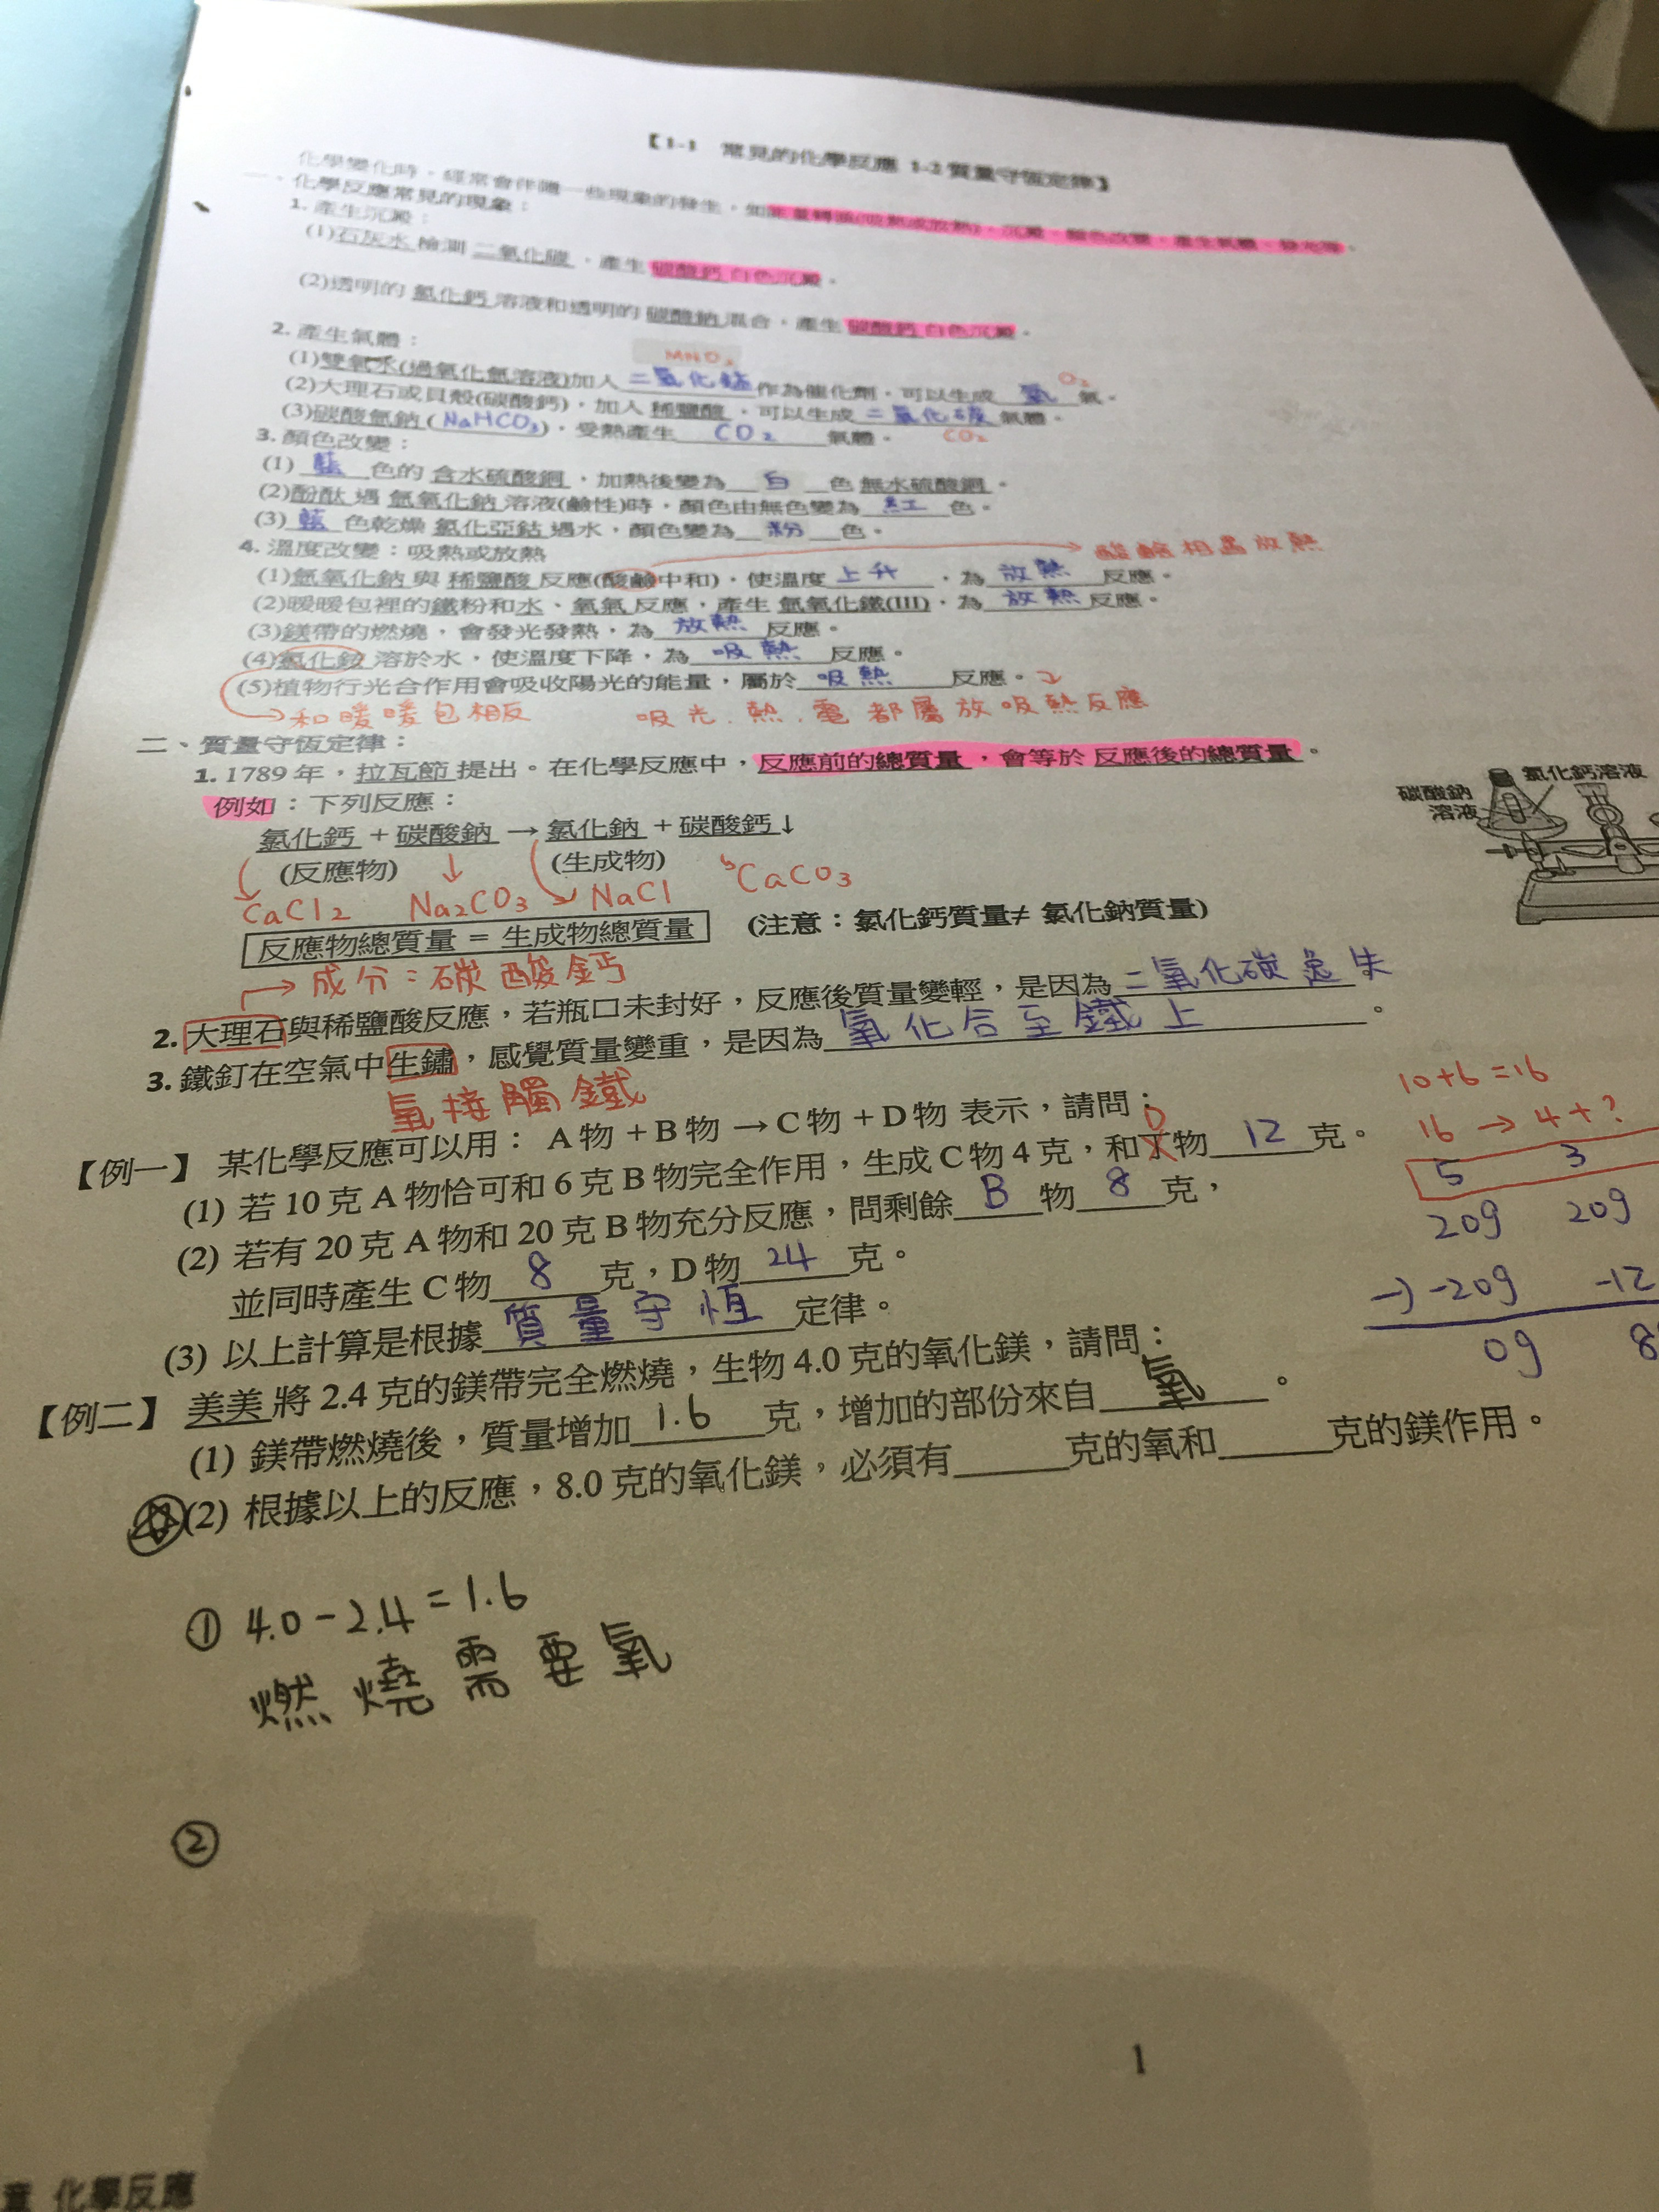 【1-1 常見的化學反應 1-2 質量守恆定律】
化學變化時，經常會伴隨一些現象的發生，如能量轉換(吸熱或放熱)、沉澱、顏色改變、產生氣體、發光等。
一、化學反應常見的現象：
1. 產生沉澱：
(1)石灰水 檢測 二氧化碳，產生 碳酸鈣 白色沉澱。
(2)透明的 氯化鈣 溶液和透明的 碳酸鈉 混合，產生 碳酸鈣 白色沉澱。
2. 產生氣體：
MNO2
(1)雙氧水(過氧化氫溶液)加入 二氧化錳 作為催化劑，可以生成 氧 氣。
O2
(2)大理石或貝殼(碳酸鈣)，加入 稀鹽酸，可以生成 二氧化碳 氣體。
CO2
(3)碳酸氫鈉(NaHCO3)，受熱產生 CO2 氣體。
3. 顏色改變：
(1) 藍 色的 含水硫酸銅，加熱後變為 白 色 無水硫酸銅。
(2)酚酞 遇 氫氧化鈉 溶液(鹼性)時，顏色由無色變為 紅 色。
(3) 藍 色乾燥 氯化亞鈷 遇水，顏色變為 粉 色。
4. 溫度改變：吸熱或放熱
酸鹼相遇放熱
(1)氫氧化鈉 與 稀鹽酸 反應(酸鹼中和)，使溫度 上升，為 放熱 反應。
(2)暖暖包裡的鐵粉和水、氧氣 反應，產生 氫氧化鐵(III)，為 放熱 反應。
(3)鎂帶的燃燒，會發光發熱，為 放熱 反應。
(4)氯化銨 溶於水，使溫度下降，為 吸熱 反應。
(5)植物行光合作用會吸收陽光的能量，屬於 吸熱 反應。
和暖暖包相反 吸光.熱.電都屬放吸熱反應
二、質量守恆定律：
1. 1789 年，拉瓦節 提出。在化學反應中，反應前的總質量，會等於 反應後的總質量。
例如：下列反應：
氯化鈣 + 碳酸鈉 → 氯化鈉 + 碳酸鈣↓
(反應物) (生成物)
CaCl2 Na2CO3 NaCl CaCO3
反應物總質量 = 生成物總質量 (注意：氯化鈣質量≠ 氯化鈉質量)
碳酸鈉溶液
氯化鈣溶液
→成分：碳酸鈣
2. 大理石與稀鹽酸反應，若瓶口未封好，反應後質量變輕，是因為 二氧化碳逸失
3. 鐵釘在空氣中生鏽，感覺質量變重，是因為 氧化合至鐵上。
氧接觸鐵
【例一】 某化學反應可以用： A 物 + B 物 → C 物 + D 物 表示，請問：
(1) 若 10 克 A 物恰可和 6 克 B 物完全作用，生成 C 物 4 克，和 D 物 12 克。
(2) 若有 20 克 A 物和 20 克 B 物充分反應，問剩餘 B 物 8 克，
並同時產生 C 物 8 克，D 物 24 克。
(3) 以上計算是根據 質量守恆 定律。
10+6=16
16 → 4+?
5 3
20g 20g
-) -20g -12
0g 8
【例二】 美美 將 2.4 克的鎂帶完全燃燒，生物 4.0 克的氧化鎂，請問：
(1) 鎂帶燃燒後，質量增加 1.6 克，增加的部份來自 氧。
(2) 根據以上的反應，8.0 克的氧化鎂，必須有______克的氧和______克的鎂作用。
① 4.0-2.4=1.6
燃燒需要氧
②
1
章 化學反應